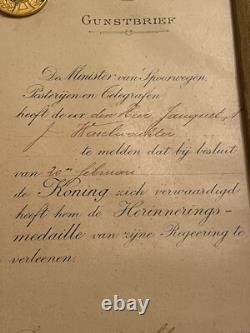 GUNSTBRIEF
De Minister van Spoorwegen,
Posterijen en Telegrafen
heeft de eer den Heer
te melden dat bij besluit
van 20n februari
de Koning zich verwaardigd
heeft hem de Herinnerings-
medaille van zijne Regeering te
verleenen.